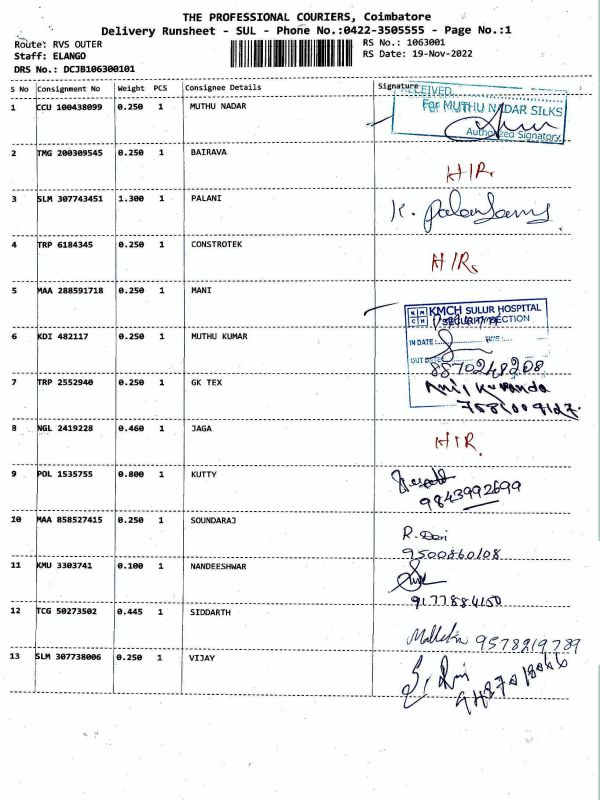 THE PROFESSIONAL COURIERS, Coimbatore
Delivery Runsheet - SUL - Phone No.:0422-3505555 - Page No.:1
Route: RVS OUTER
RS No.: 1063001
Staff: ELANGO
RS Date: 19-Nov-2022
DRS No.: DCJB106300101
S No Consignment No Weight PCS Consignee Details Signature
RECEIVED
1 CCU 100438099 0.250 1 MUTHU NADAR For MUTHU NADAR SILKS
Authorized Signatory
2 TMG 200309545 0.250 1 BAIRAVA
HIR.
3 SLM 307743451 1.300 1 PALANI
K. Palanisamy
4 TRP 6184345 0.250 1 CONSTROTEK
HIR.
5 MAA 288591718 0.250 1 MANI
KMCH SULUR HOSPITAL
SECURITY SECTION
6 KDI 482117 0.250 1 MUTHU KUMAR
IN DATE: TIME:
OUT DATE
8870248208
7 TRP 2552940 0.250 1 GK TEX
8 NGL 2419228 0.460 1 JAGA
HIR.
9 POL 1535755 0.800 1 KUTTY
9843992699
10 MAA 858527415 0.250 1 SOUNDARAJ
R. Devi
9500860108
11 KMU 3303741 0.100 1 NANDEESHWAR
9177884150
12 TCG 50273502 0.445 1 SIDDARTH
9578219789
13 SLM 307738006 0.250 1 VIJAY